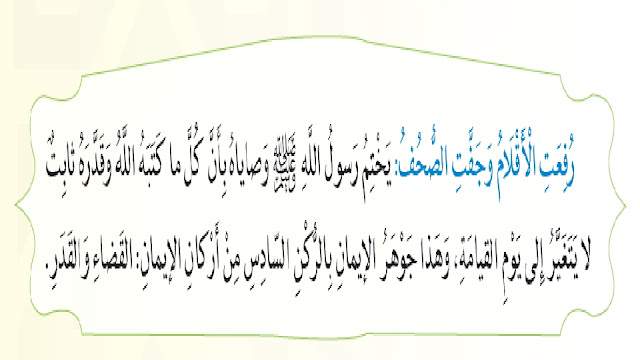 رُفِعَتِ الْأَقْلَامُ وَجَفَّتِ الصُّحُفُ: يَخْتِمُ رَسولُ اللَّهِ ﷺ وَصاياهُ بِأَنَّ كُلَّ ما كَتَبَهُ اللَّهُ وَقَدَّرَهُ ثابِتٌ
لا يَتَغَيَّرُ إِلى يَوْمِ القيامَةِ، وَهَذا جَوْهَرُ الإيمانِ بِالرُّكْنِ السّادِسِ مِنْ أَرْكانِ الإيمانِ: القَضاءِ وَ القَدَرِ.